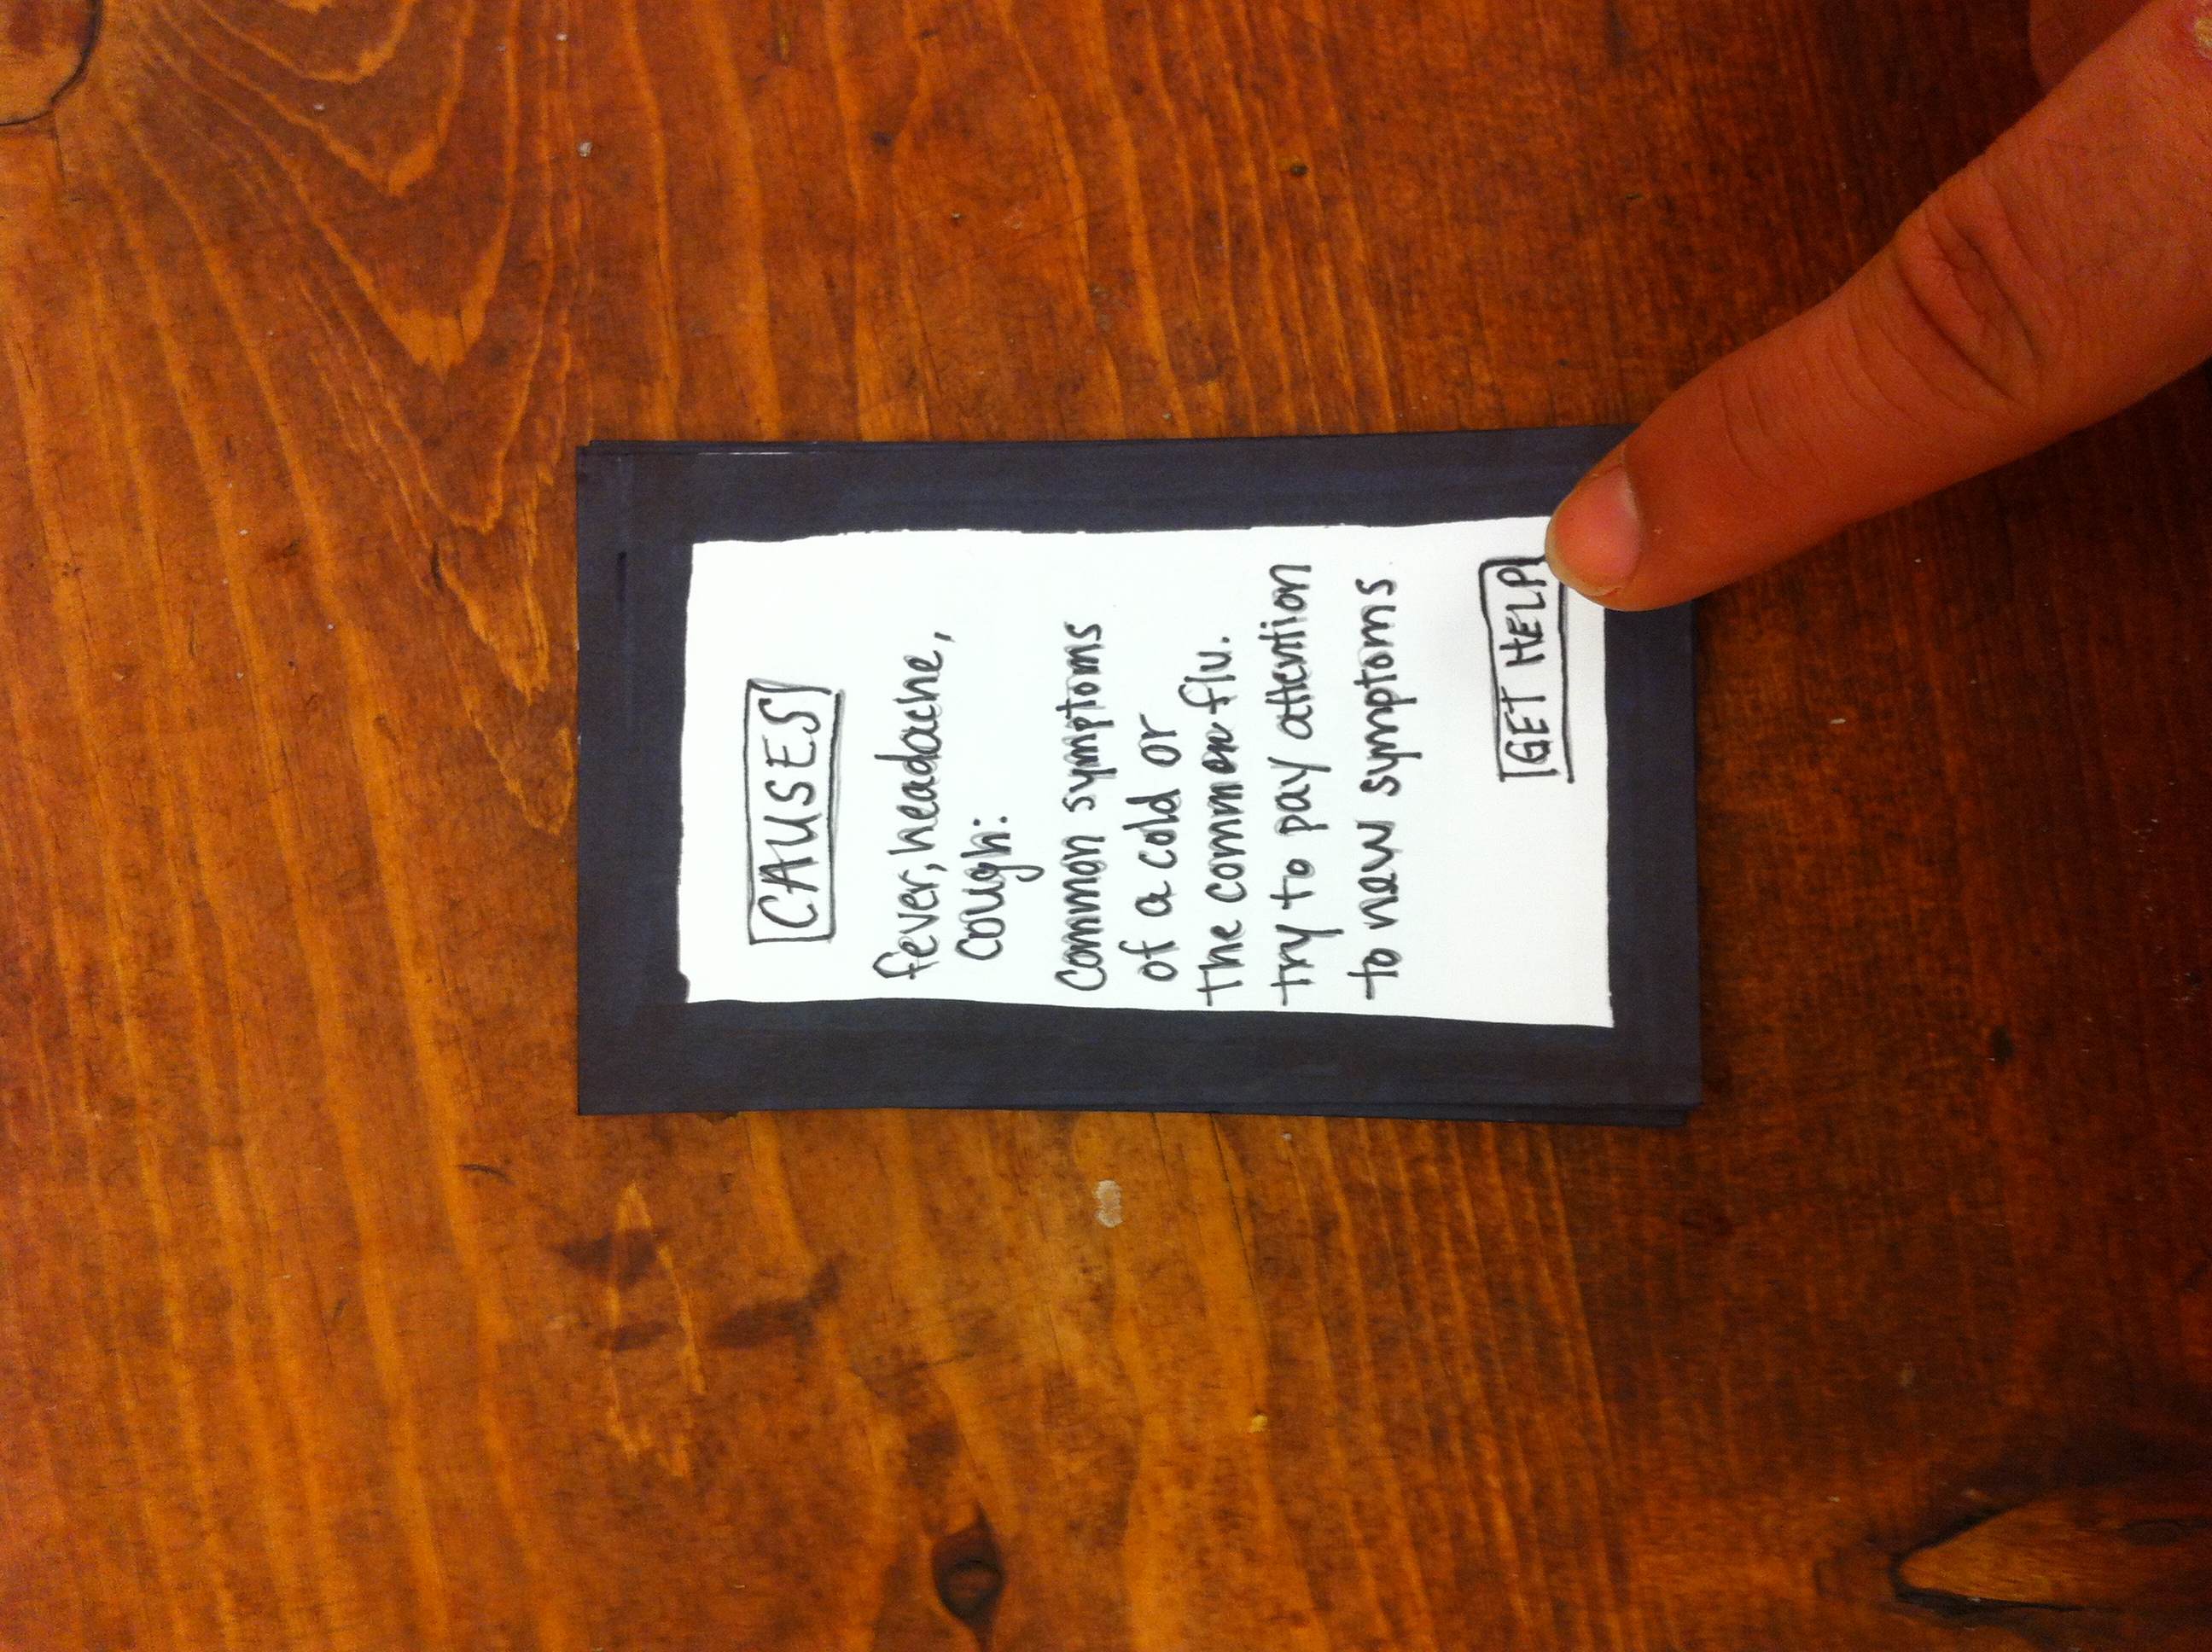 CAUSES
fever, headache,
cough:
common symptoms
of a cold or
the common flu.
try to pay attention
to new symptoms
GET HELP